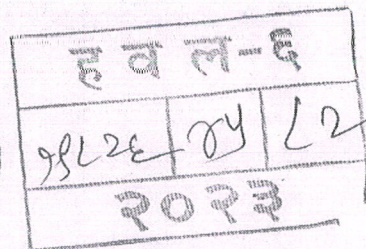 हवल-६
१९८२६ ४५ ८२
२०२३